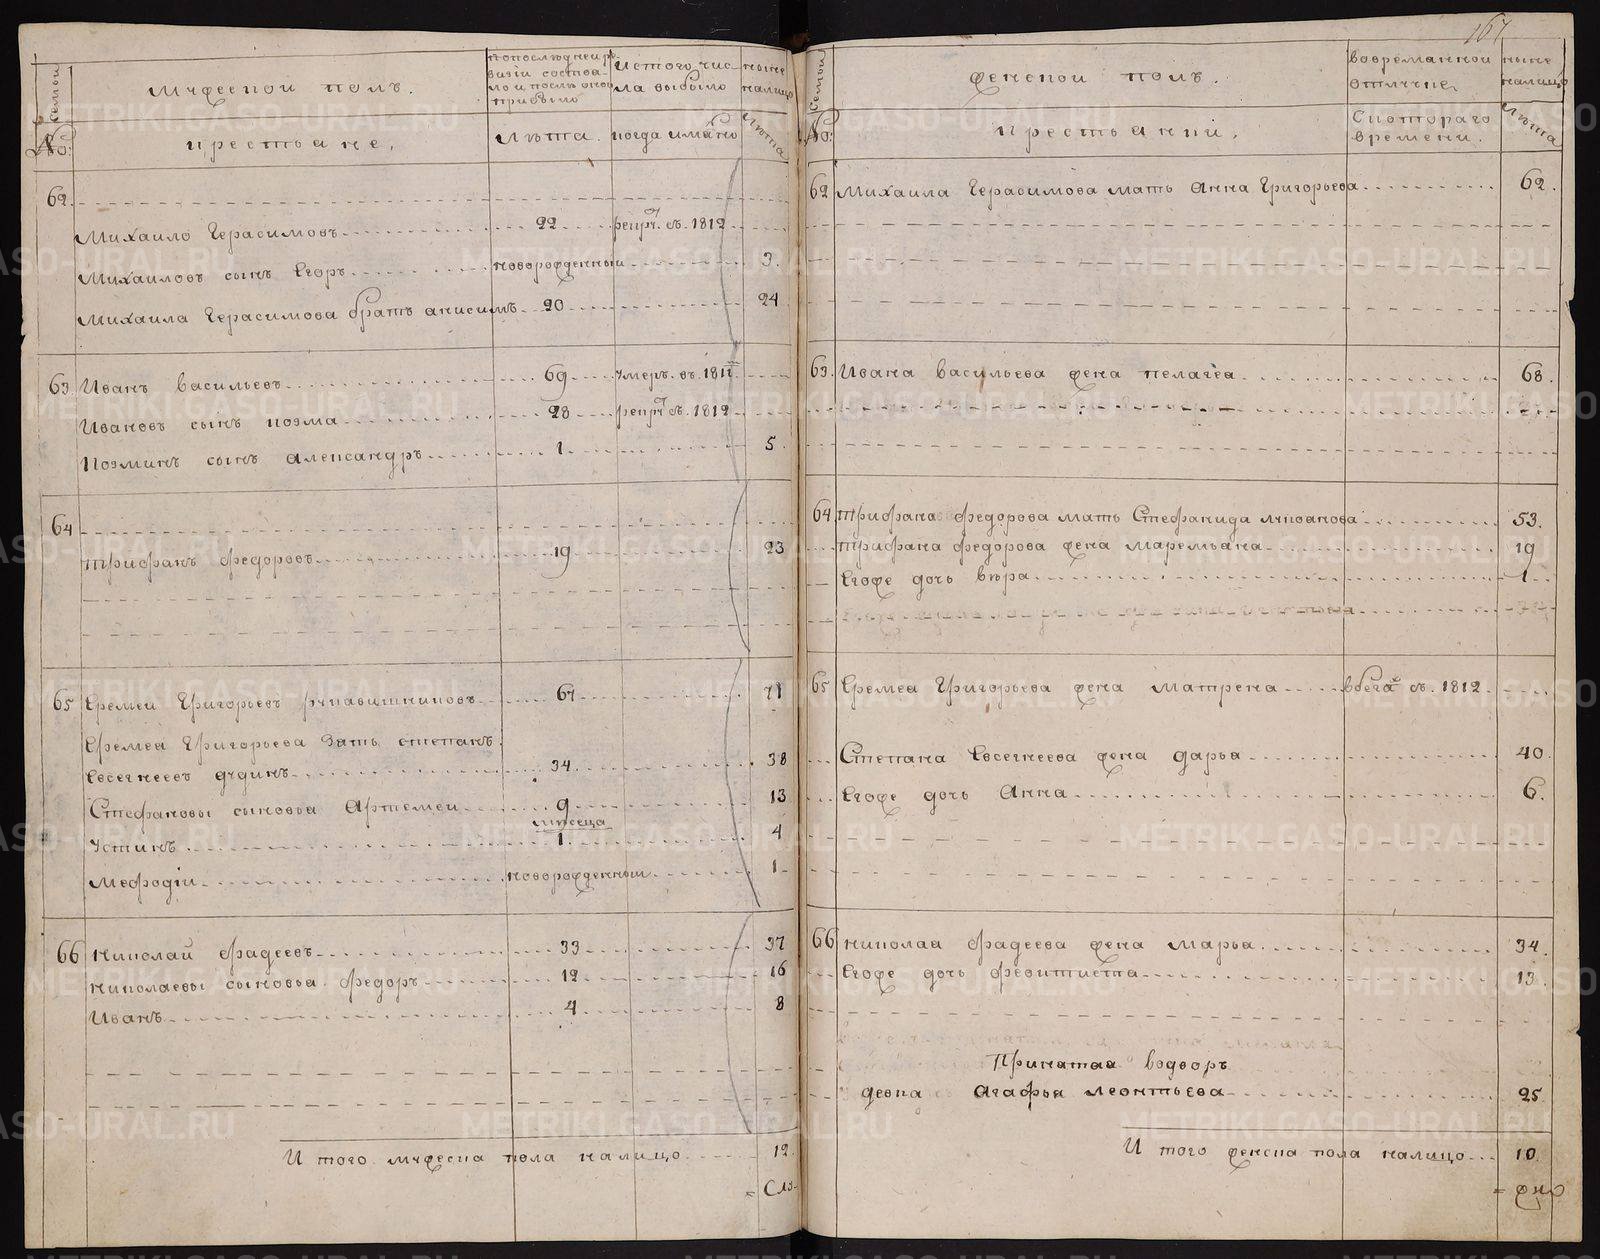 167
семьи
мужескои полъ.
попоследнеи ре
визіи состоя-
ло и после оной
прибыло
ис того чис-
ла выбыло
ныне
налицо
№:
крестьяне.
лѣта.
когда имяно
лѣта
62.
Михаило Герасимовъ 22 рекрут. въ 1812
Михаиловъ сынъ Егоръ новорожденныи 3.
Михаила Герасимова братъ анисимъ 20 24
63. Иванъ васильевъ 69 умеръ въ 1811
Ивановъ сынъ козма 28 рекрут. въ 1812
Козминъ сынъ александръ 1 5
64
трифанъ федоровъ 19 23
65 Еремеи Григорьевъ рукавишниковъ 67 71
Еремея Григорьева зять степанъ
Евсегнеевъ дудинъ 34 38
Стефановы сыновья Артемеи 9 13
месеца
Устинъ 1 4
мефодіи новорожденныи 1
66 николаи фадеевъ 33 37
николаевы сыновья федоръ 12 16
Иванъ 4 8
И того мужеска пола налицо 12
= Слз
семьи
женскои полъ.
вовременнои
отлучке
ныне
налицо
№:
крестьянки.
Скотораго
времени.
лѣта
62 Михаила Герасимова мать Анна Григорьева 62.
63. Ивана васильева жена пелагея 68.
64 трифана федорова мать Стефанида лукоянова 53.
трифана федорова жена маремьяна 19
Егоже дочь вѣра 1
65 Еремея Григорьева жена матрена вбегах съ 1812
Степана Евсегнеева жена дарья 40
Егоже дочь Анна 6.
66 николая фадеева жена марья 34.
Егоже дочь феоктиста 13.
Принятая водворъ
девка Агафья леонтьева 25
И того женска пола налицо 10.